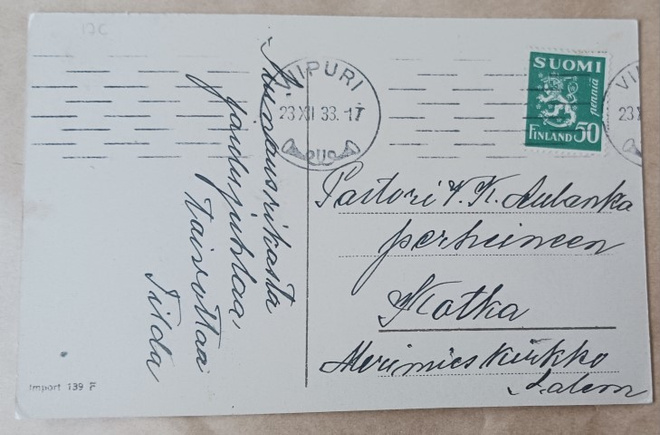 13C
Siunausrikasta
joulujuhlaa,
toivottaa
Tilda
VIIPURI
23 XII 33.-17
SUOMI
penniä
FINLAND 50
VII
23X
Pastori V. K. Aulanko
perheineen
Kotka
Merimieskirkko
Salem
Import 139 F